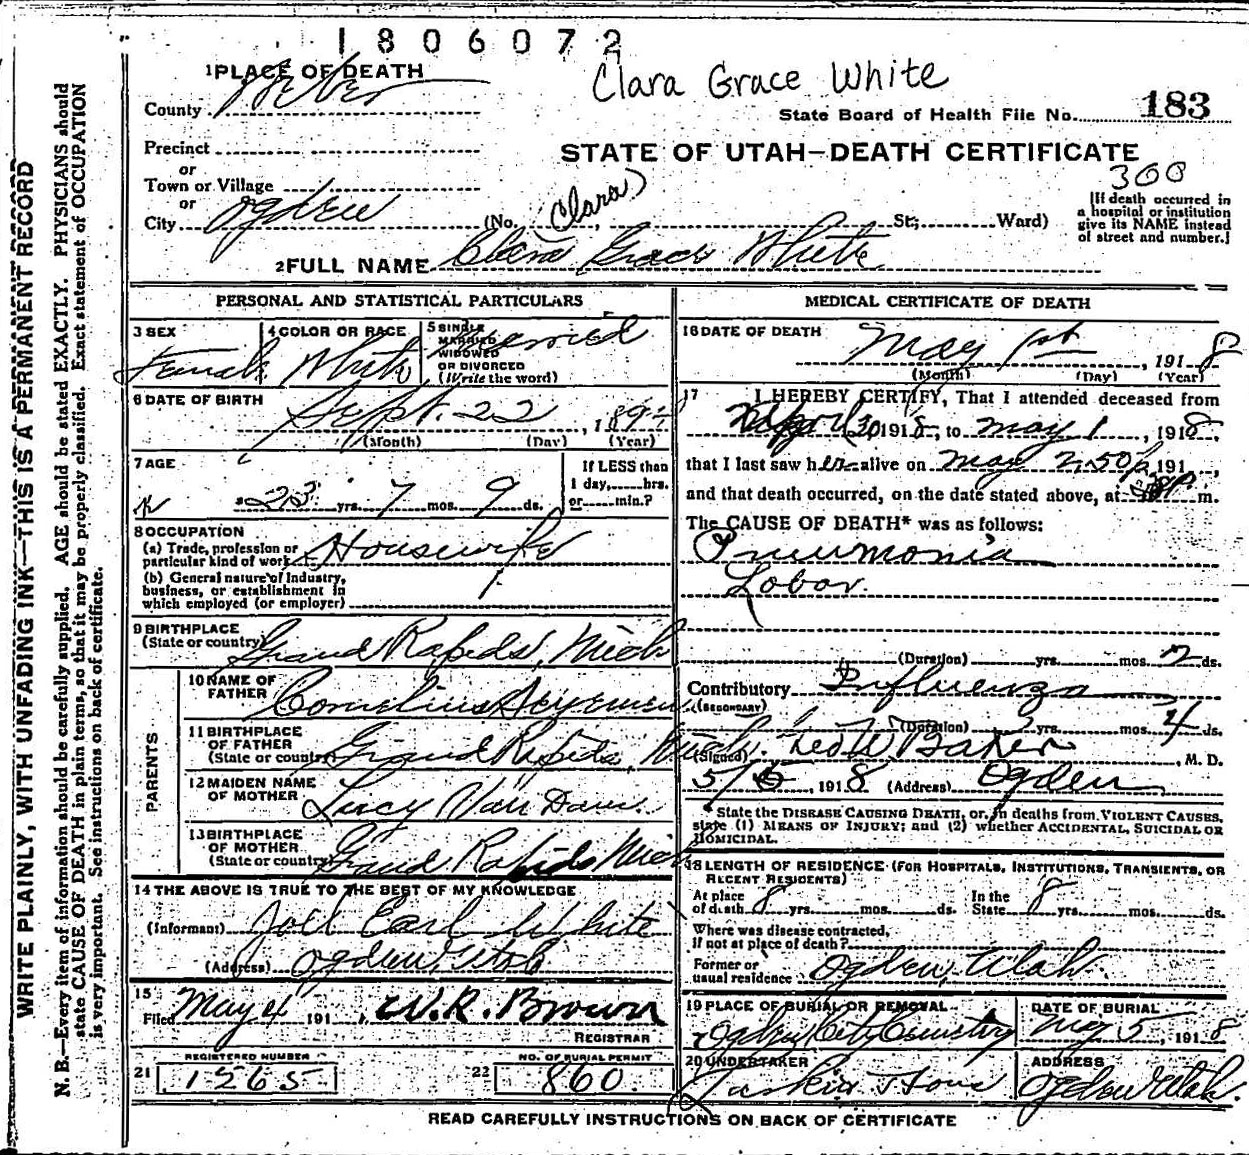 1806072
Clara Grace White
1 PLACE OF DEATH
County Weber
State Board of Health File No. 183
Precinct
or
Town or Village
or
City Ogden
STATE OF UTAH—DEATH CERTIFICATE
300
[If death occurred in
a hospital or institution
give its NAME instead
of street and number.]
(No. (Clara) St; Ward)
2 FULL NAME Clara Grace White
PERSONAL AND STATISTICAL PARTICULARS
3 SEX
Female
4 COLOR OR RACE
White
5 SINGLE
MARRIED
WIDOWED
OR DIVORCED
(Write the word)
Married
6 DATE OF BIRTH
Sept. 22, 189
(Month) (Day) (Year)
7 AGE
23 yrs. 7 mos. 9 ds.
If LESS than
1 day, hrs.
or min.?
8 OCCUPATION
(a) Trade, profession or
particular kind of work Housewife
(b) General nature of Industry,
business, or establishment in
which employed (or employer)
9 BIRTHPLACE
(State or country) Grand Rapids, Mich
PARENTS
10 NAME OF
FATHER Cornelius
11 BIRTHPLACE
OF FATHER
(State or country) Grand Rapids, Mich.
12 MAIDEN NAME
OF MOTHER Lucy Van Dam
13 BIRTHPLACE
OF MOTHER
(State or country) Grand Rapids Mich
14 THE ABOVE IS TRUE TO THE BEST OF MY KNOWLEDGE
(Informant) Joel Earl White
(Address) Ogden, Utah
15
Filed May 4 191 W. R. Brown
REGISTRAR
REGISTERED NUMBER
21 1265
NO. OF BURIAL PERMIT
22 860
MEDICAL CERTIFICATE OF DEATH
16 DATE OF DEATH
May 1st, 1918
(Month) (Day) (Year)
17 I HEREBY CERTIFY, That I attended deceased from
April 30 1918, to May 1, 1918,
that I last saw her alive on May 2:50 p, 191 ,
and that death occurred, on the date stated above, at m.
The CAUSE OF DEATH* was as follows:
Pneumonia
Lobar.
(Duration) yrs. mos. 2 ds.
Contributory Influenza
(SECONDARY)
(Duration) yrs. mos. 4 ds.
(Signed) Baker, M. D.
5/5, 1918 (Address) Ogden
*State the DISEASE CAUSING DEATH, or, in deaths from VIOLENT CAUSES,
state (1) MEANS OF INJURY; and (2) whether ACCIDENTAL, SUICIDAL OR
HOMICIDAL.
18 LENGTH OF RESIDENCE (FOR HOSPITALS, INSTITUTIONS, TRANSIENTS, OR
RECENT RESIDENTS)
At place
of death 8 yrs. mos. ds.
In the
State 8 yrs. mos. ds.
Where was disease contracted,
if not at place of death?
Former or
usual residence Ogden, Utah.
19 PLACE OF BURIAL OR REMOVAL
Ogden City Cemetery
DATE OF BURIAL
May 5, 1918
20 UNDERTAKER
ADDRESS
Ogden Utah.
READ CAREFULLY INSTRUCTIONS ON BACK OF CERTIFICATE
WRITE PLAINLY, WITH UNFADING INK—THIS IS A PERMANENT RECORD
N. B.—Every item of information should be carefully supplied. AGE should be stated EXACTLY. PHYSICIANS should
state CAUSE OF DEATH in plain terms, so that it may be properly classified. Exact statement of OCCUPATION
is very important. See instructions on back of certificate.